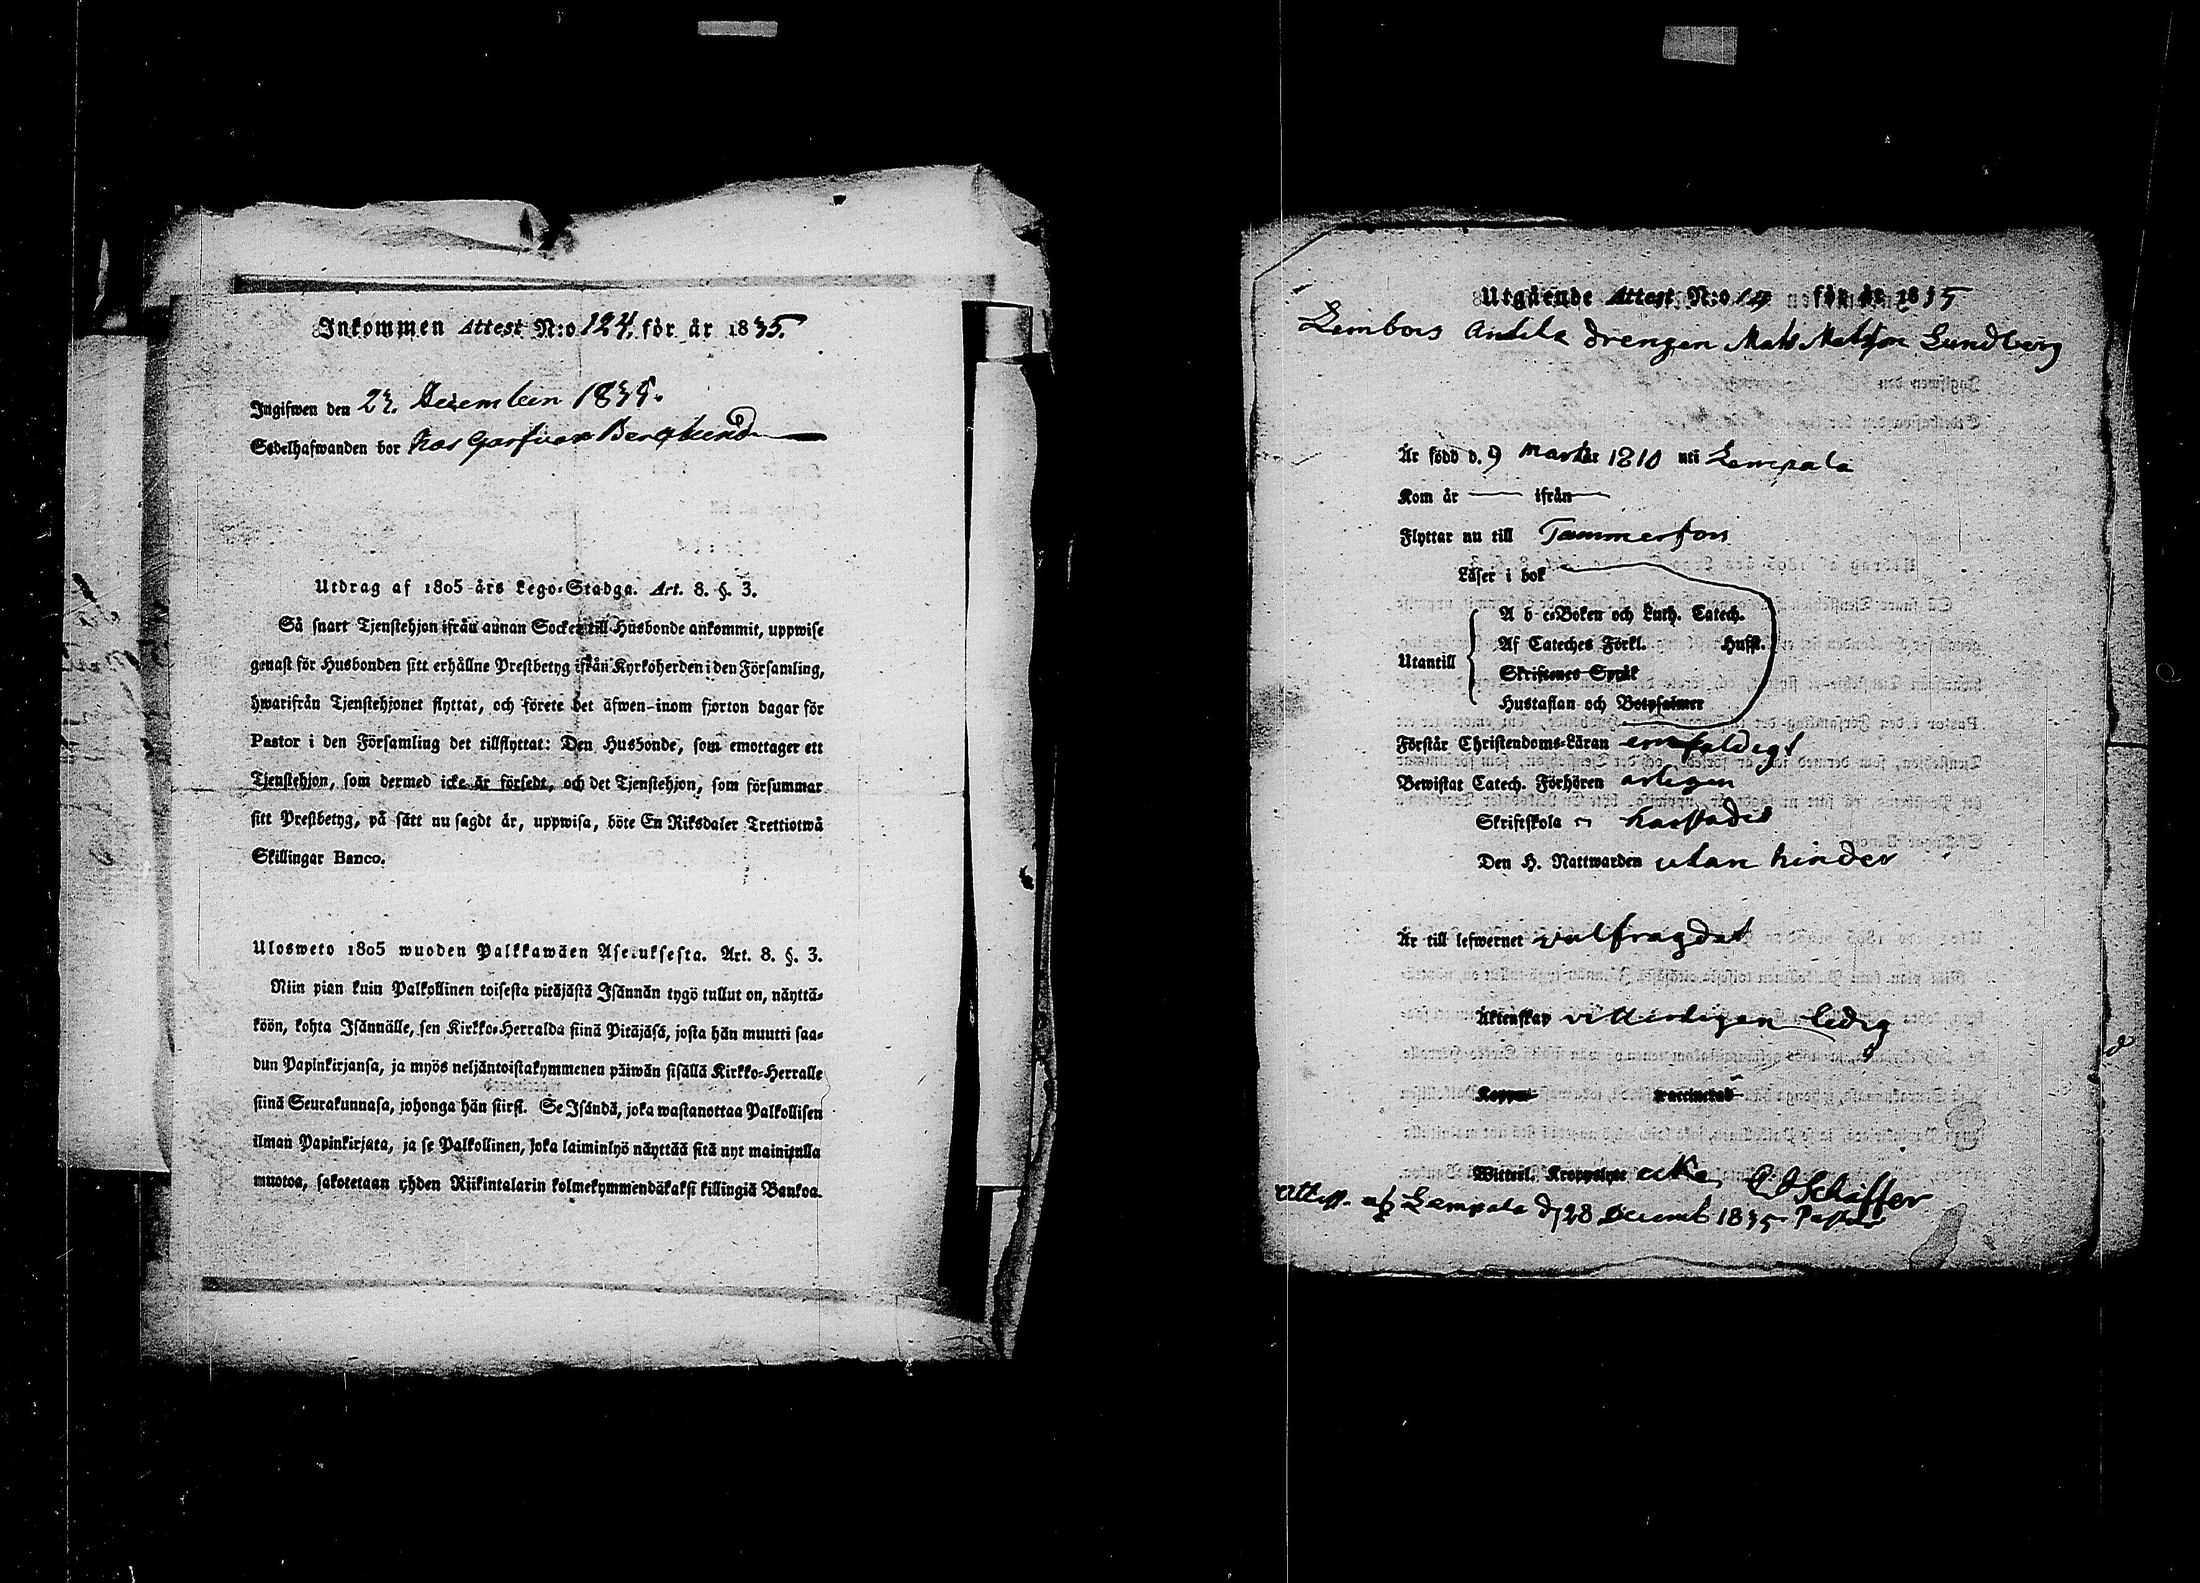 Inkommen Attest N:o 124. för år 1835.
Ingifwen den 23. December 1835.
Sedelhafwanden bor hos Garfvar Berglund
Utdrag af 1805 års Lego-Stadga. Art. 8. §. 3.
Så snart Tjenstehjon ifrån annan Socken till Husbonde ankommit, uppwise
genast för Husbonden sitt erhållne Prestbetyg ifrån Kyrkoherden i den Församling,
hwarifrån Tjenstehjonet flyttat, och förete det äfwen inom fjorton dagar för
Pastor i den Församling det tillflyttat: Den Husbonde, som emottager ett
Tjenstehjon, som dermed icke är försedt, och det Tjenstehjon, som försummar
sitt Prestbetyg, på sätt nu sagdt är, uppwisa, böte En Riksdaler Trettiotwå
Skillingar Banco.
Ulosweto 1805 wuoden Palkkawäen Aseuksesta. Art. 8. §. 3.
Niin pian kuin Palkollinen toisesta pitäjästä Isännän tygö tullut on, näyttä-
köön, kohta Isännälle, sen Kirkko-Herralda siinä Pitäjäsä, josta hän muutti saa-
dun Papinkirjansa, ja myös neljäntoistakymmenen päiwän sisällä Kirkko-Herralle
siinä Seurakunnasa, johonga hän siirsi. Se Isändä, joka wastanottaa Palkollisen
ilman Papinkirjata, ja se Palkollinen, joka laiminlyö näyttää sitä nyt mainitulla
muotoa, sakotetaan yhden Riikintalarin kolmekymmendäkaksi killingiä Bankoa.
Utgående Attest N:o 14 för år 1835
Lembois Anttila drengen Mats Matsson Lundberg
Är född d. 9 Martii 1810 uti Lempala
Kom år — ifrån —
Flyttar nu till Tammerfors
Läser i bok
Utantill
A b c-Boken och Luth. Catech.
Af Cateches Förkl. Husfl.
Skriftenes Språk
Hustaflan och Botpsalmer
Förstår Christendoms-Läran enfaldigt
Bewistat Catech. Förhören årligen
Skriftskola
Den H. Nattwarden utan hinder
Är till lefwernet välfrägdat
Äktenskap vitterligen ledig
Koppor vaccinerad
Witterl. Kroppslyte icke, Schäffer
Attest. af Lempala d. 28 Decemb 1835 Pastor